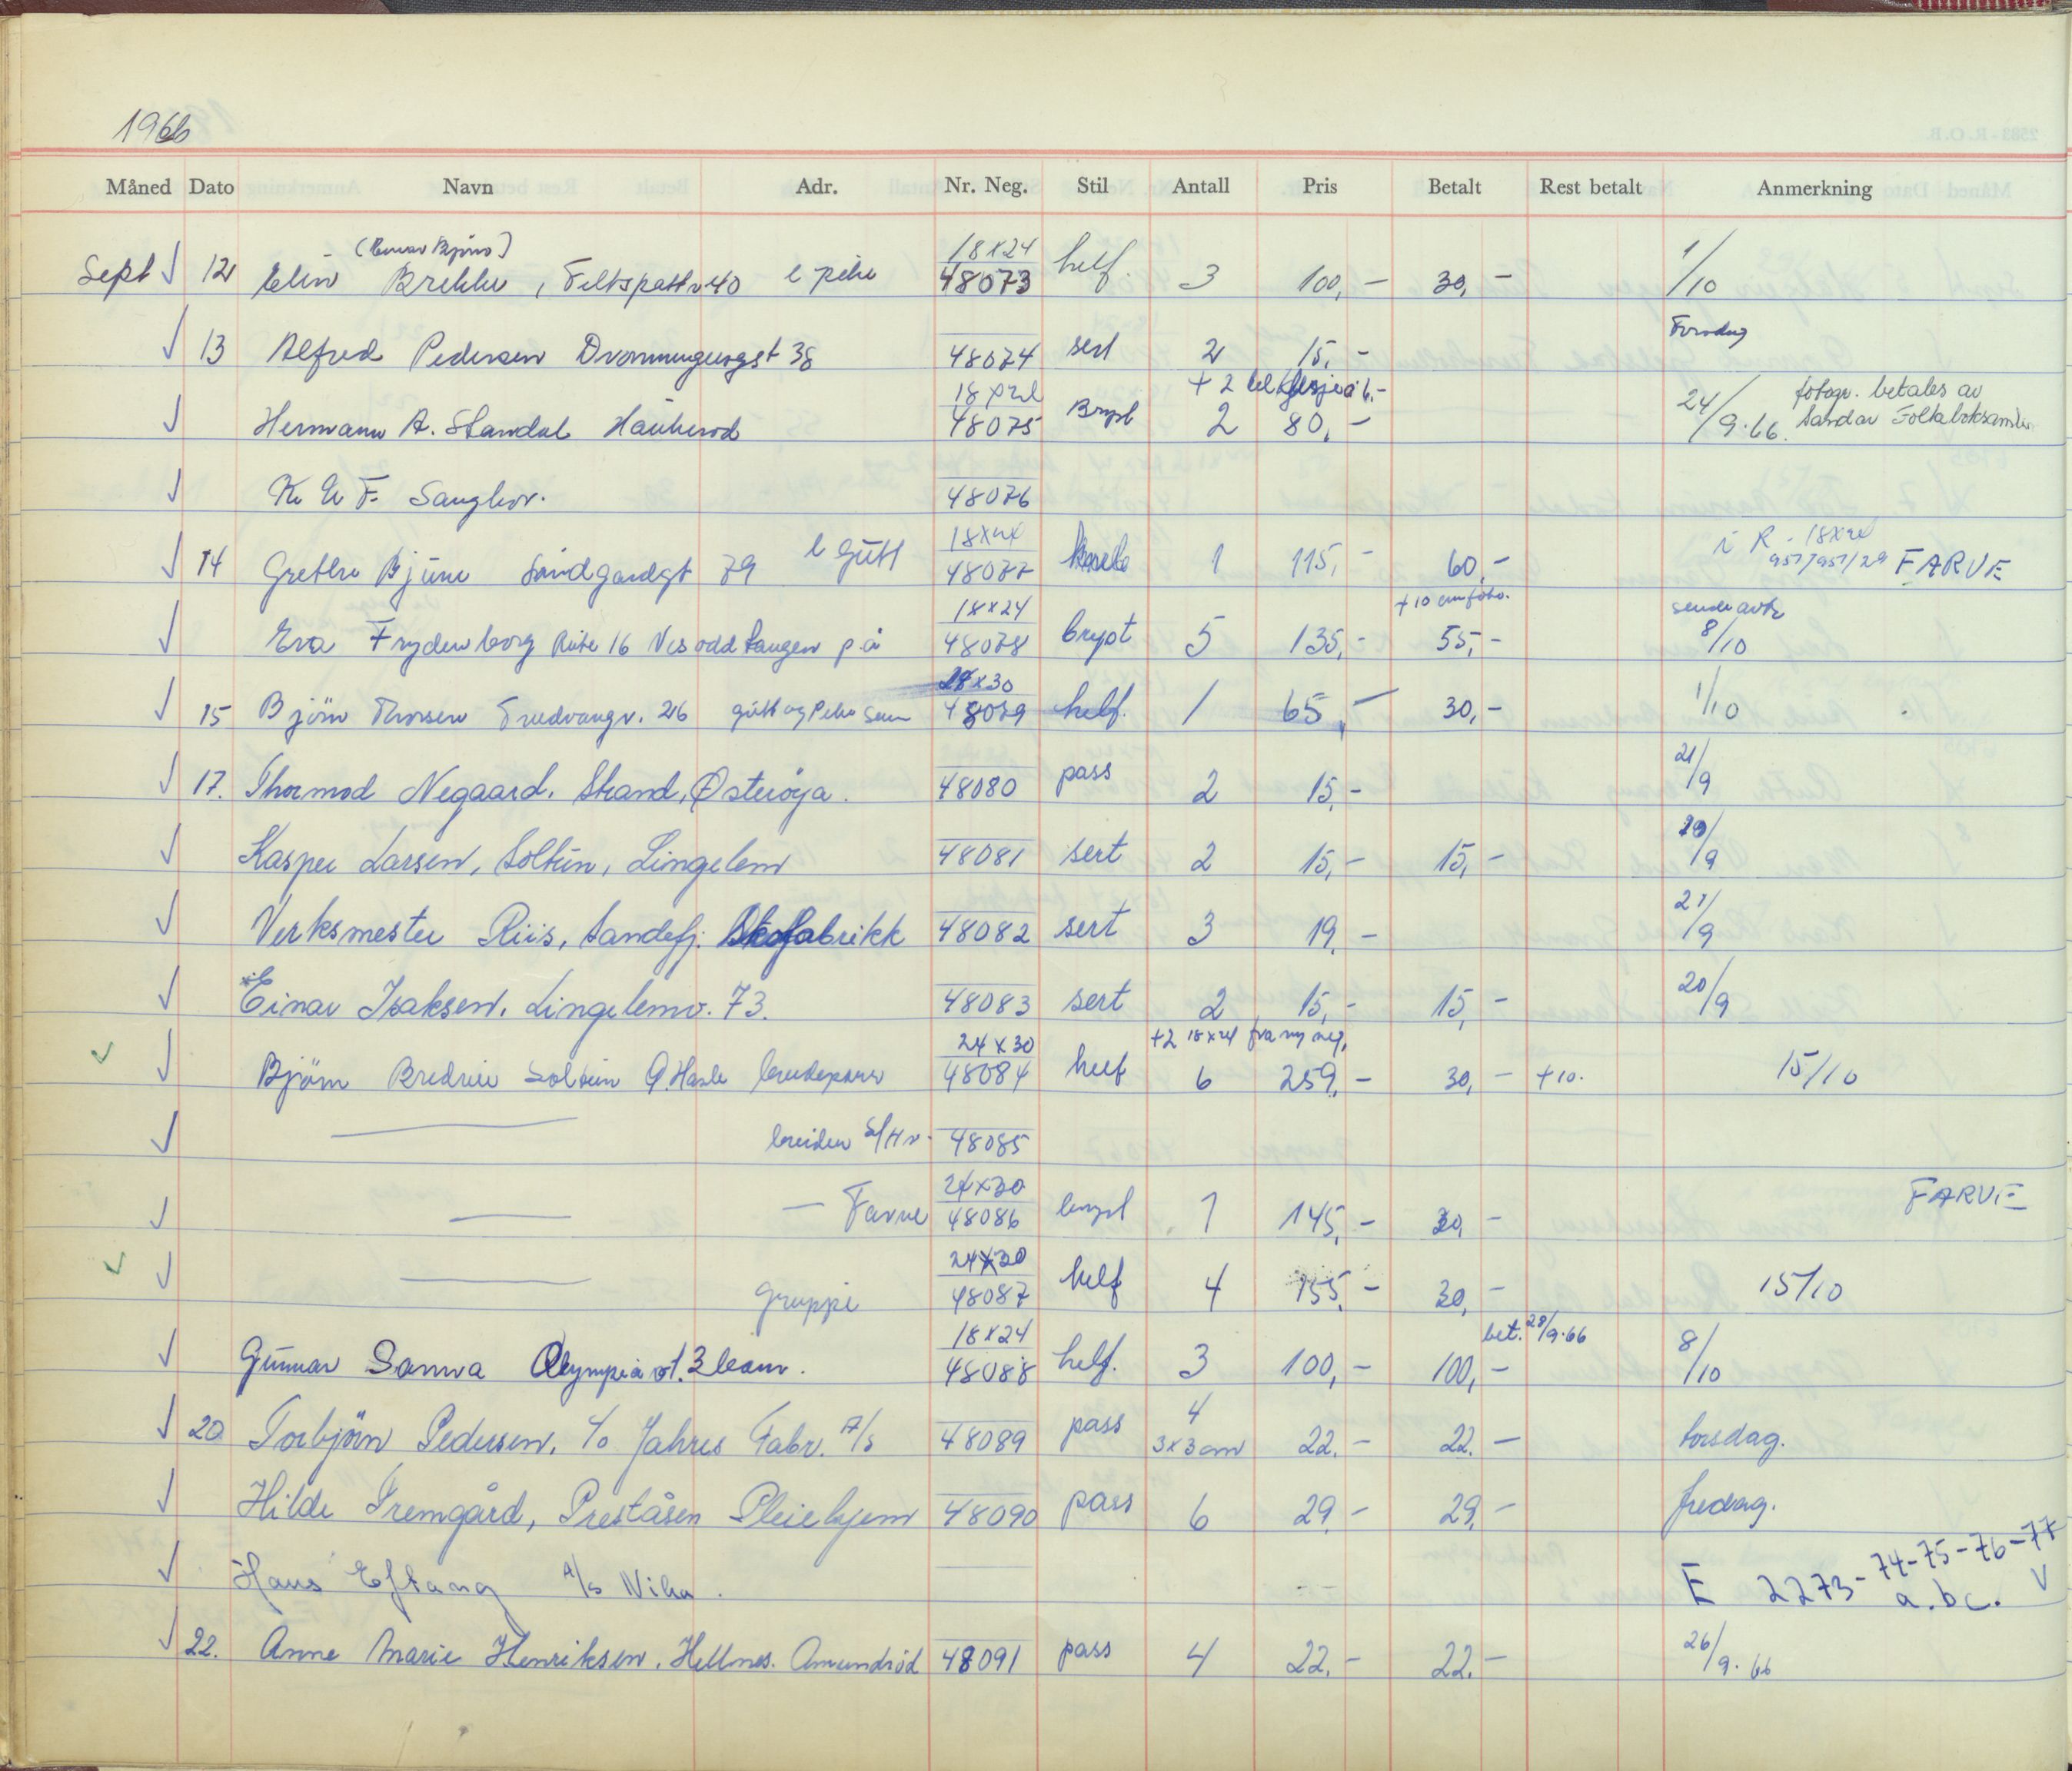 1966
Måned Dato Navn Adr. Nr. Neg. Stil Antall Pris Betalt Rest betalt Anmerkning
18x24
Sept √ 12 Elin Brekke, Feltspattv 40 48073 helf. 3 100,- 30,- 1/10
√ 13 Alfred Pedersen Dronningensgt 38 48074 sert 2 15,- Torsdag
18x24 + 2 à 6,-
√ Hermann A. Standal Haukerød 48075 Bryst 2 80,- 24/9.66. fotogr. betales av Sandar
√ K. U F. Sangkor. 48076
18x24
√ 14 Grethe Bjune Sandgardgt 79 1 Gutt 48077 1 115,- 60,- i R - 18x24 957/951/29 FARVE
18x24 +10
√ Eva Frydenborg Rute 16 Vesoddtangen p å 48078 bryst 5 135,- 55,- sende 8/10
24x30
√ 15 Bjørn Thorsen Fredvangv. 26 gutt og Pike 48079 helf. 1 65,- 30,- 1/10
√ 17. Thormod Negaard. Strand, Østerøya. 48080 pass 2 15,- 21/9
√ Kasper Larsen, Soltun, Lingelem 48081 sert 2 15,- 15,- 20/9
√ Verksmester Riis, Sandefj. Skofabrikk 48082 sert 3 19,- 21/9
√ Einar Isaksen. Lingelemv. 73. 48083 sert 2 15,- 15,- 20/9
24x30 +2 18x24 fra ny neg.
√ √ Bjørn Solvein G. Hasle brudepar 48084 helf 6 259,- 30,- +10. 15/10
√ — bruden S/Hv. 48085
24x30
√ — — Farve 48086 bryst 1 145,- 30,- FARVE
24x30
√ √ — gruppe 48087 helf 4 155,- 30,- 15/10
18x24 bet. 28/9.66
√ Gunnar Sanva Olympia 48088 helf. 3 100,- 100,- 8/10
√ 20 Torbjörn Pedersen. c/o Jahres Fabr. A/s 48089 pass 4 3x3cm 22.- 22.- torsdag.
√ Hilde Tremgård, Preståsen Pleiehjem 48090 pass 6 29,- 29,- fredag.
√ Hans Eftang A/s Nika. E 2273-74-75-76-77 a.bc. V
√ 22. Anne Marie Henriksen. Hellnes. Amundrød 48091 pass 4 22.- 22.- 26/9.66